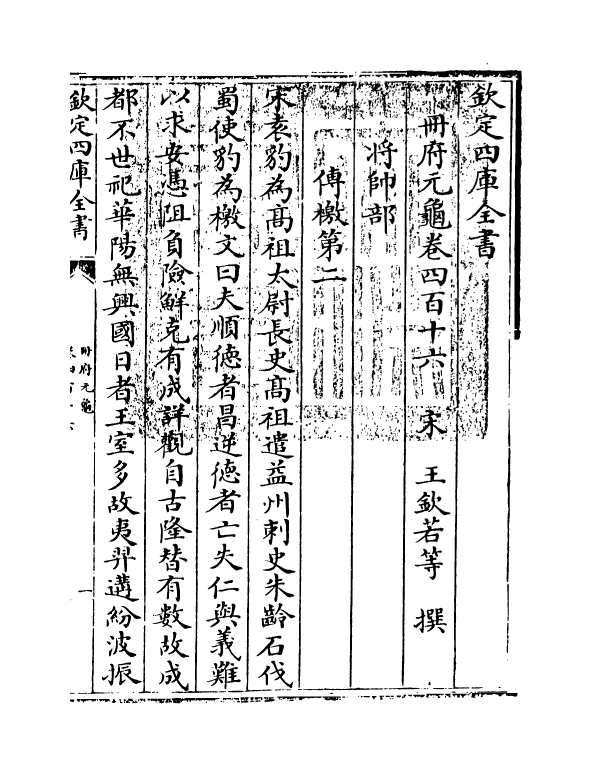 欽定四庫全書
冊府元龜卷四百十六 宋 王欽若等 撰
將帥部
傳檄第二
宋袁豹為髙祖太尉長史髙祖遣益州刺史朱齡石伐
蜀使豹為檄文曰夫順徳者昌逆徳者亡失仁與義難
以求安憑阻負險鮮克有成詳觀自古隆替有數故成
都不世祀華陽無興國日者王室多故夷羿遘紛波振
欽定四庫全書
冊府元龜
卷四百十六
一